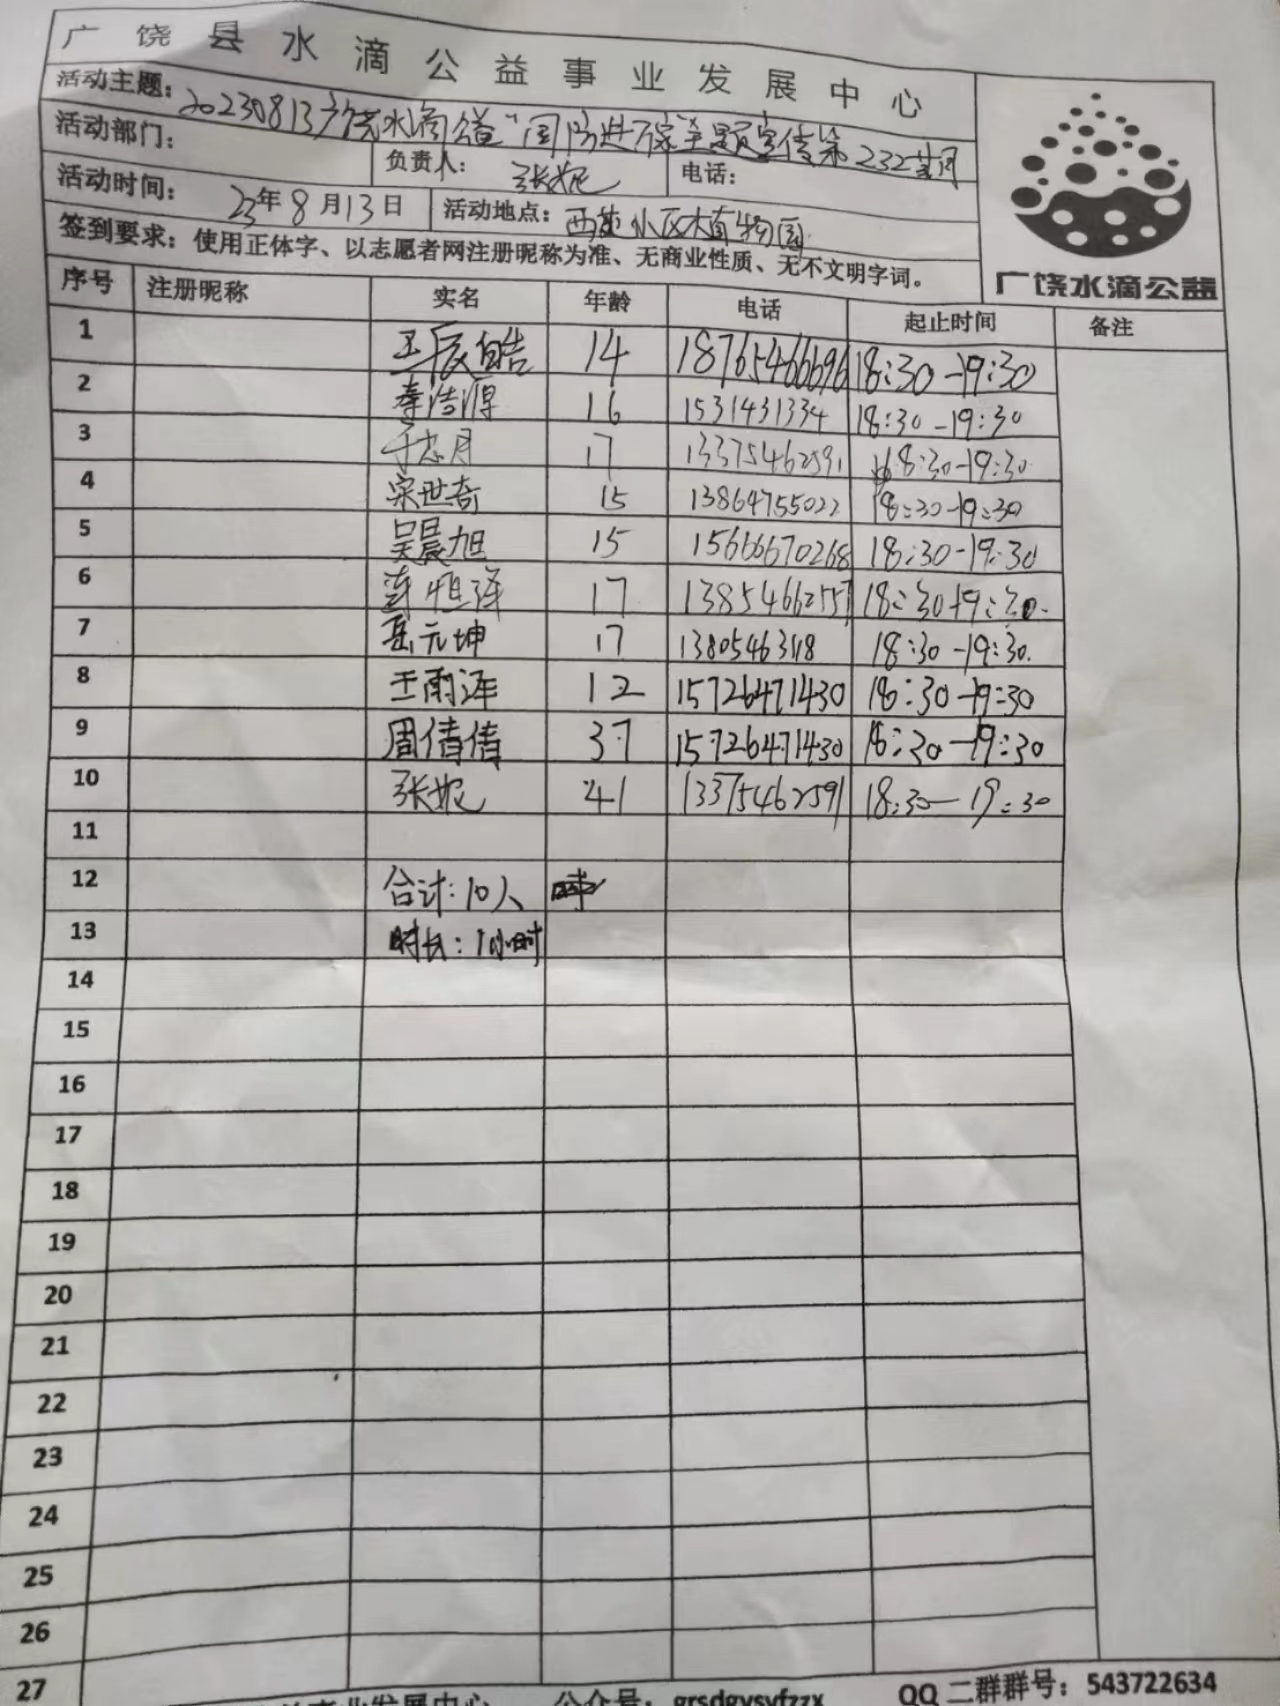 广饶县水滴公益事业发展中心
活动主题：20230813广饶水滴公益"国防进万家"主题宣传第232期
活动部门： 负责人：张妮 电话：
活动时间：23年8月13日 活动地点：西苑小区植物园
签到要求：使用正体字、以志愿者网注册昵称为准、无商业性质、无不文明字词。
广饶水滴公益
序号 注册昵称 实名 年龄 电话 起止时间 备注
1 王辰皓 14 18765466696 18:30-19:30
2 李浩源 16 1531431334 18:30-19:30
3 于志月 17 13375462591 18:30-19:30
4 宋世奇 15 13864755022 18:30-19:30
5 吴晨旭 15 15666670268 18:30-19:30
6 17 18:30-19:30
7 岳元坤 17 1380546318 18:30-19:30
8 王雨泽 12 15726471430 18:30-19:30
9 周倩倩 37 15726471430 18:30-19:30
10 张妮 41 13375462591 18:30-19:30
11
12 合计:10人
13 时长:1小时
14
15
16
17
18
19
20
21
22
23
24
25
26
27
事业发展中心 公众号：grsdgysyfzzx QQ二群群号：543722634